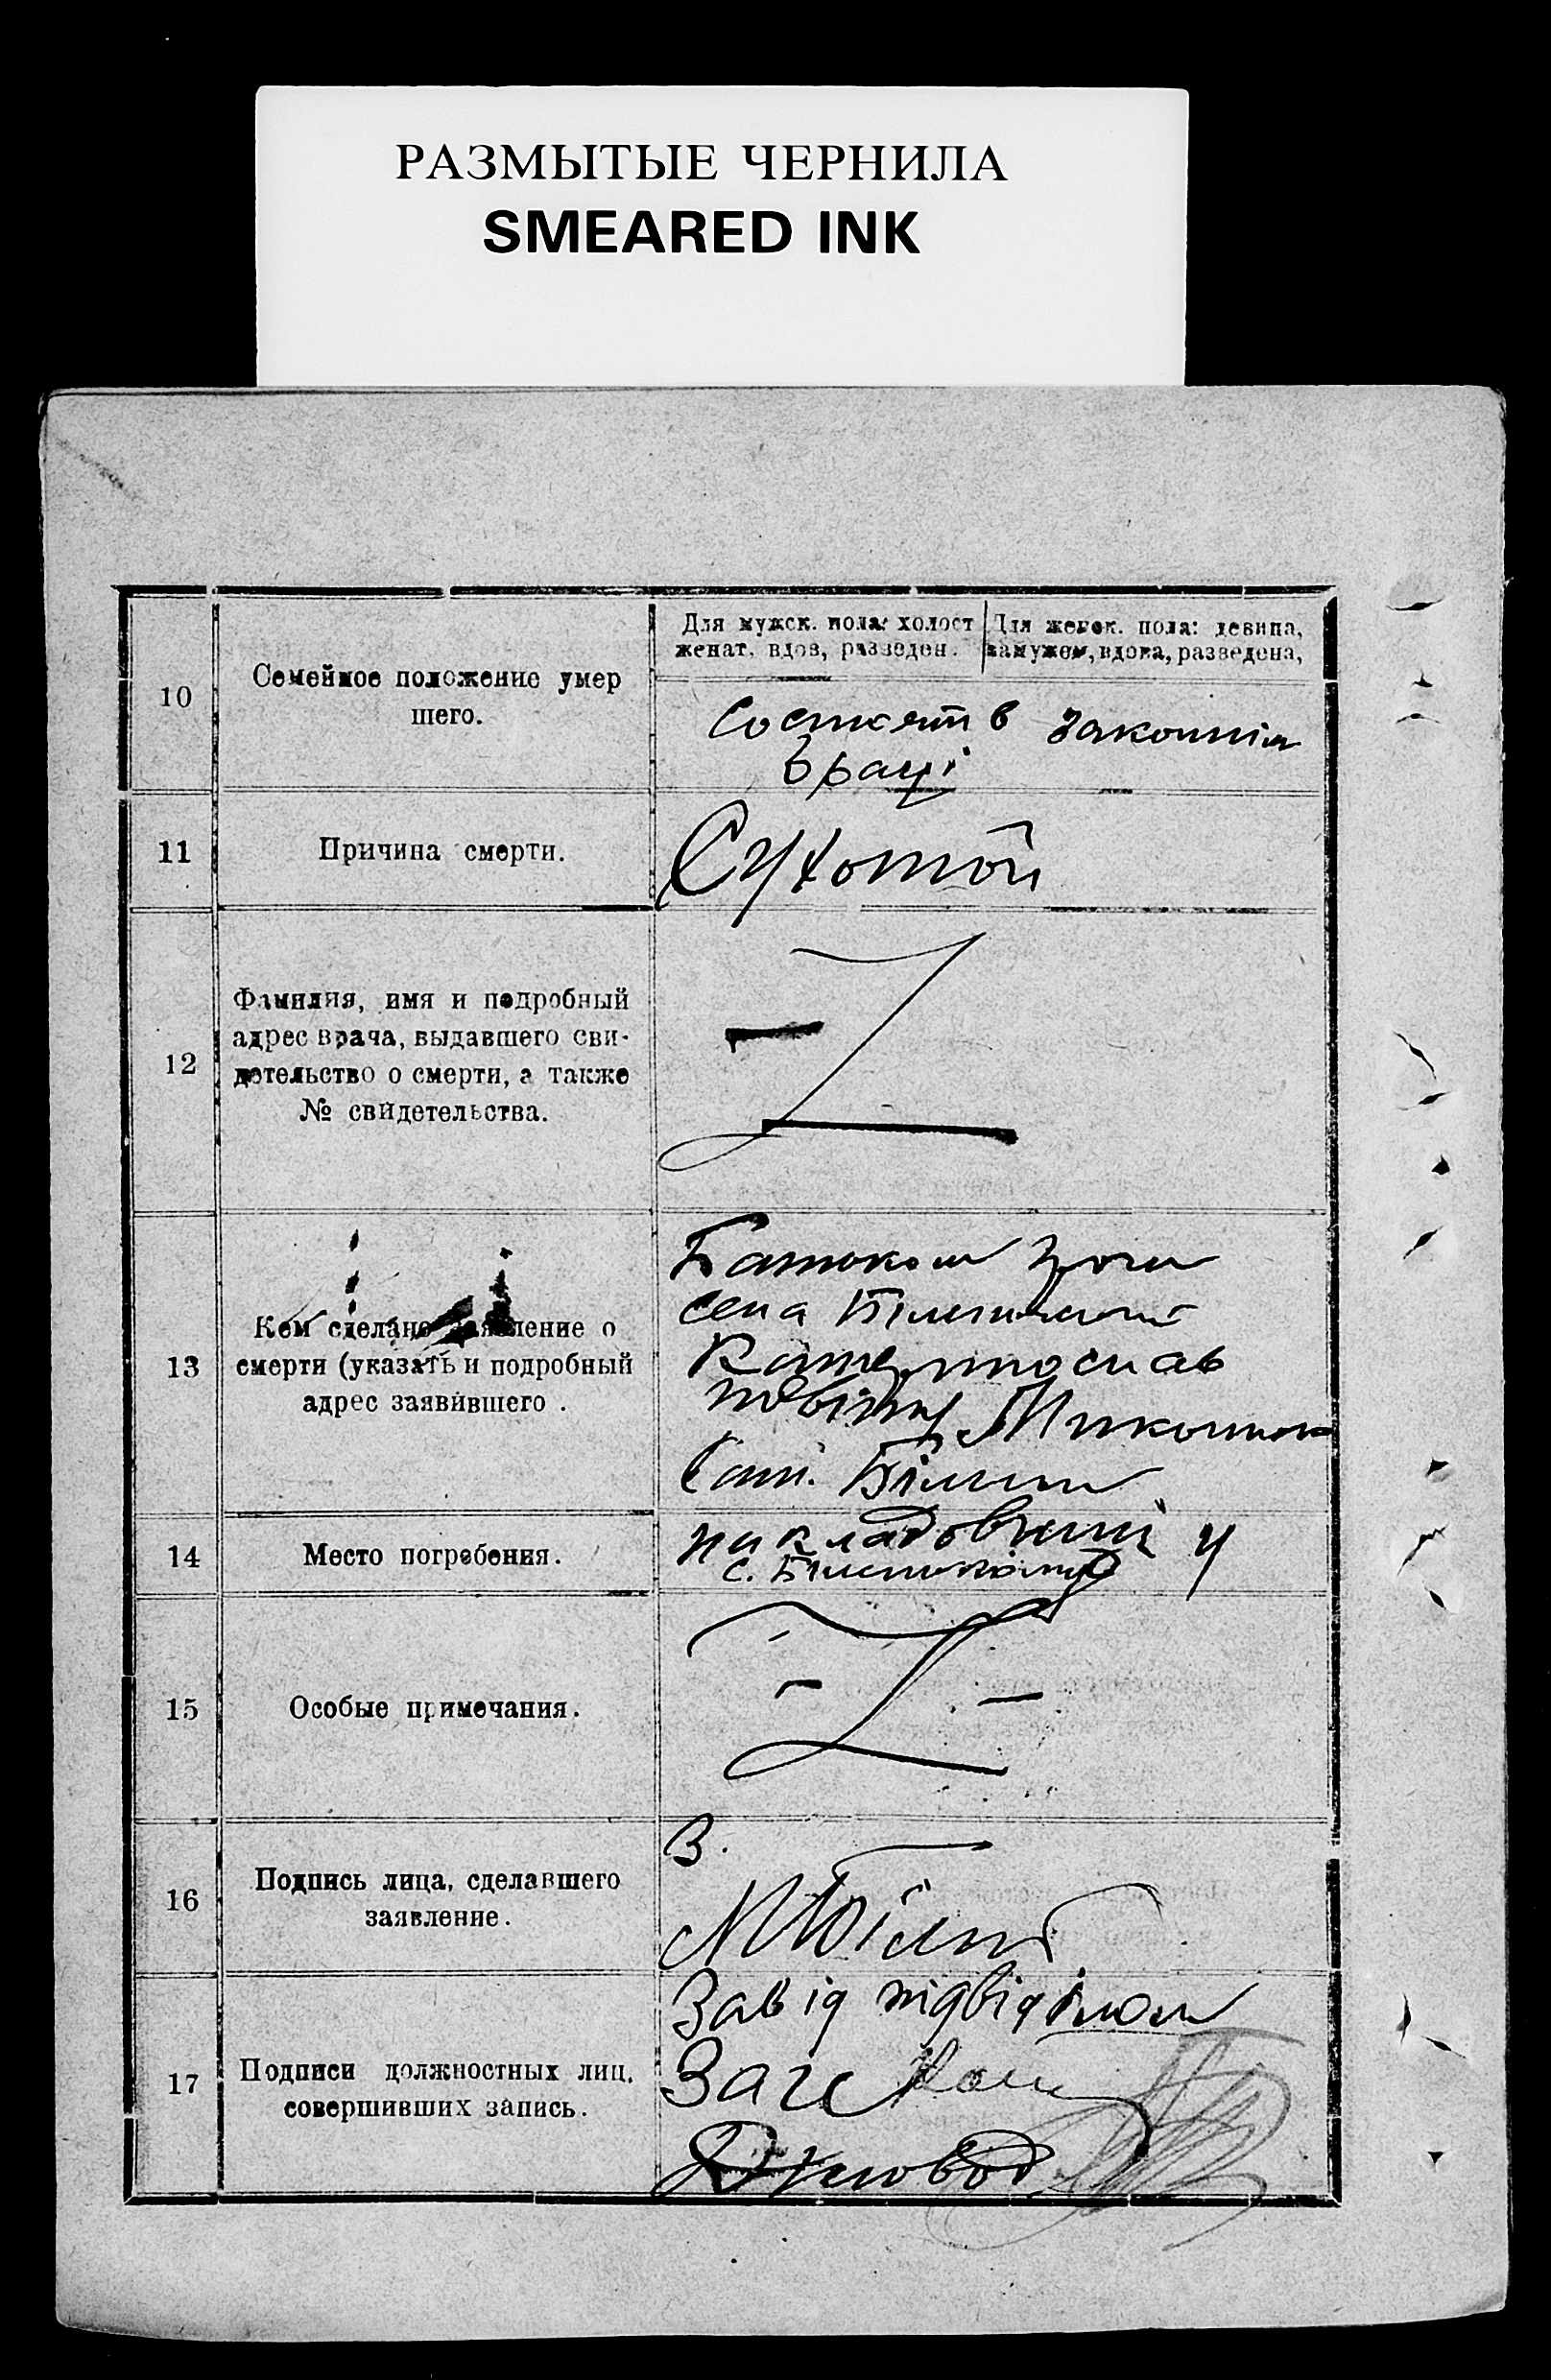 РАЗМЫТЫЕ ЧЕРНИЛА
SMEARED INK
10
Семейное положение умер
шего.
Для мужск. пола: холост
женат, вдов, разведен.
Для женск. пола: девица,
замужем, вдова, разведена,
в законнім
браці
11
Причина смерти.
Сухотой
12
Фамилия, имя и подробный
адрес врача, выдавшего сви-
детельство о смерти, а также
№ свидетельства.
13
Кем сделано заявление о
смерти (указать и подробный
адрес заявившего.
Батьком
села
Катеринослав
повіту
Білий
14
Место погребения.
на кладовищі у
с.
15
Особые примечания.
16
Подпись лица, сделавшего
заявление.
З.
М Білий
17
Подписи должностных лиц,
совершивших запись.
Завід підвіділом
Загс
Діловод